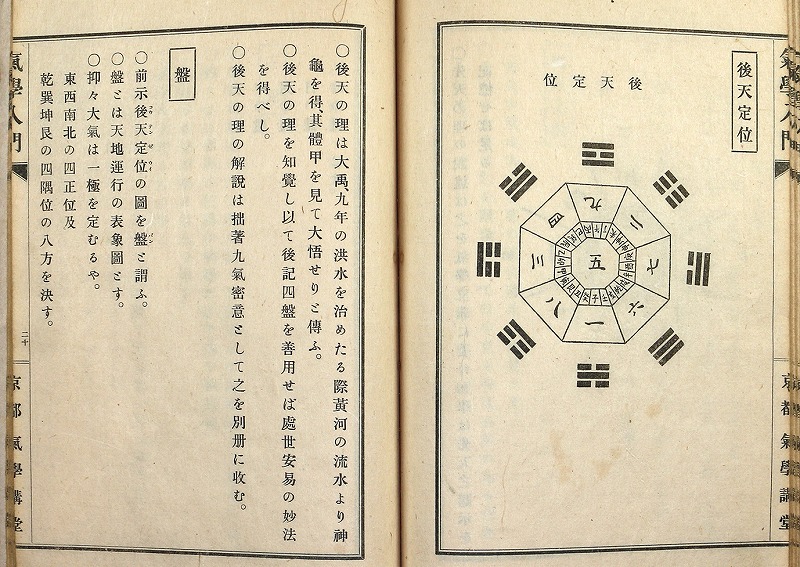 後天定位
後天定位
九
二
七
六
一
八
三
四
五
氣學入門
京都氣學講堂
〇後天の理は大禹、九年の洪水を治めたる際黃河の流水より神
龜を得、其體甲を見て大悟せりと傳ふ。
〇後天の理を知覺し以て後記四盤を善用せば處世安易の妙法
を得べし。
〇後天の理の解說は拙著九氣密意として之を別册に收む。
盤
〇前示後天定位の圖を盤と謂ふ。
〇盤とは天地運行の表象圖とす。
〇抑々大氣は一極を定むるや。
東西南北の四正位及
乾巽坤艮の四隅位の八方を決す。
氣學入門
二十
京都氣學講堂